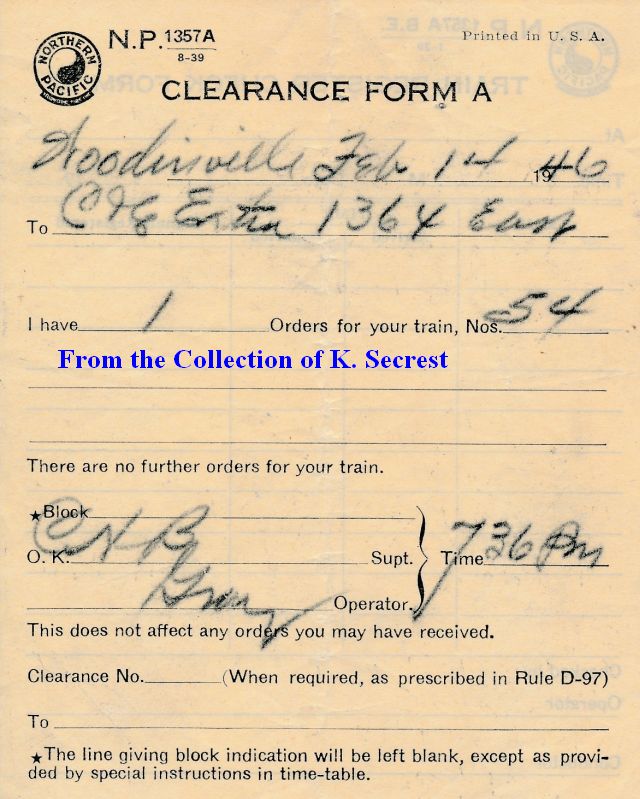 NORTHERN PACIFIC
N.P. 1357A
8-39
Printed in U. S. A.
CLEARANCE FORM A
Woodinville Feb 14 1946
To C&E Extra 1364 East
I have 1 Orders for your train, Nos. 54
From the Collection of K. Secrest
There are no further orders for your train.
★Block
O. K. CNB Supt. Time 736 PM
Operator.
This does not affect any orders you may have received.
Clearance No. (When required, as prescribed in Rule D-97)
To
★The line giving block indication will be left blank, except as provi-
ded by special instructions in time-table.